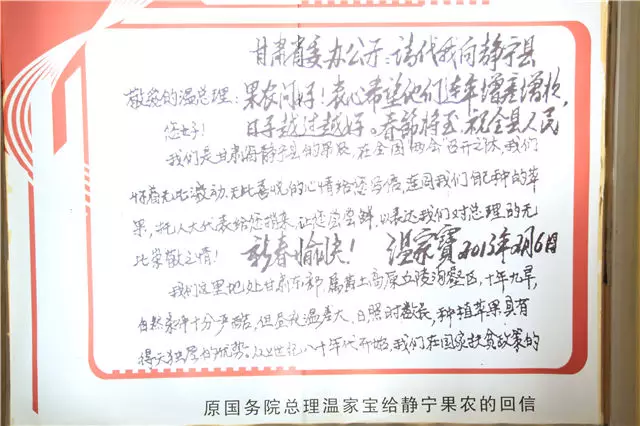 甘肃省委办公厅：请代我向静宁县
敬爱的温总理：果农问好！衷心希望他们连年增产增收，
您好！日子越过越好。春节将至，祝全县人民
我们是甘肃省静宁县的果农，在全国两会召开之际，我们
怀着无比激动、无比喜悦的心情给您写信，连同我们自己种的苹
果，托人大代表给您捎来，让您尝尝鲜，以表达我们对总理的无
比崇敬之情！新春愉快！温家宝2013年2月6日
我们这里地处甘肃东部，属黄土高原丘陵沟壑区，十年九旱，
自然条件十分严酷，但昼夜温差大，日照时数长，种植苹果具有
得天独厚的优势。从上世纪八十年代开始，我们在国家扶贫政策的
原国务院总理温家宝给静宁果农的回信